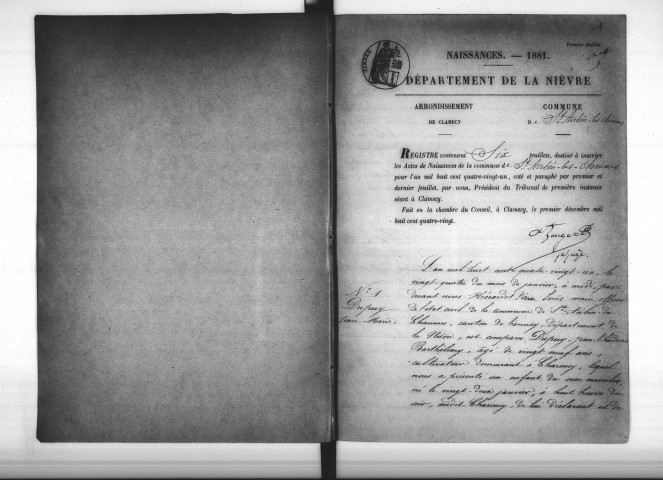 Premier feuillet
NAISSANCES. — 1881.
DÉPARTEMENT DE LA NIÈVRE
ARRONDISSEMENT
DE CLAMECY
COMMUNE
De St Aubin-les-Chaumes
REGISTRE contenant Six feuillets, destiné à inscrire
les Actes de Naissances de la commune de St Aubin-les-Chaumes
pour l'an mil huit cent quatre-vingt-un, coté et paraphé par premier et
dernier feuillet, par nous, Président du Tribunal de première instance
séant à Clamecy.
Fait en la chambre du Conseil, à Clamecy, le premier décembre mil
huit cent quatre-vingt.
N° 1
Dupuy
Jean Marie
L'an mil huit cent quatre-vingt-un, le
vingt-quatre du mois de janvier, à midi, par
devant nous Louis maire officier
de l'état civil de la commune de St Aubin des
Chaumes, canton de Tannay, département de
la Nièvre, est comparu Dupuy, Jean
Barthélemy, âgé de vingt neuf ans,
cultivateur demeurant à Charency, lequel
nous a présenté un enfant du sexe masculin,
né le vingt-deux janvier, à huit heures du
soir, audit Charency, de lui déclarant et de